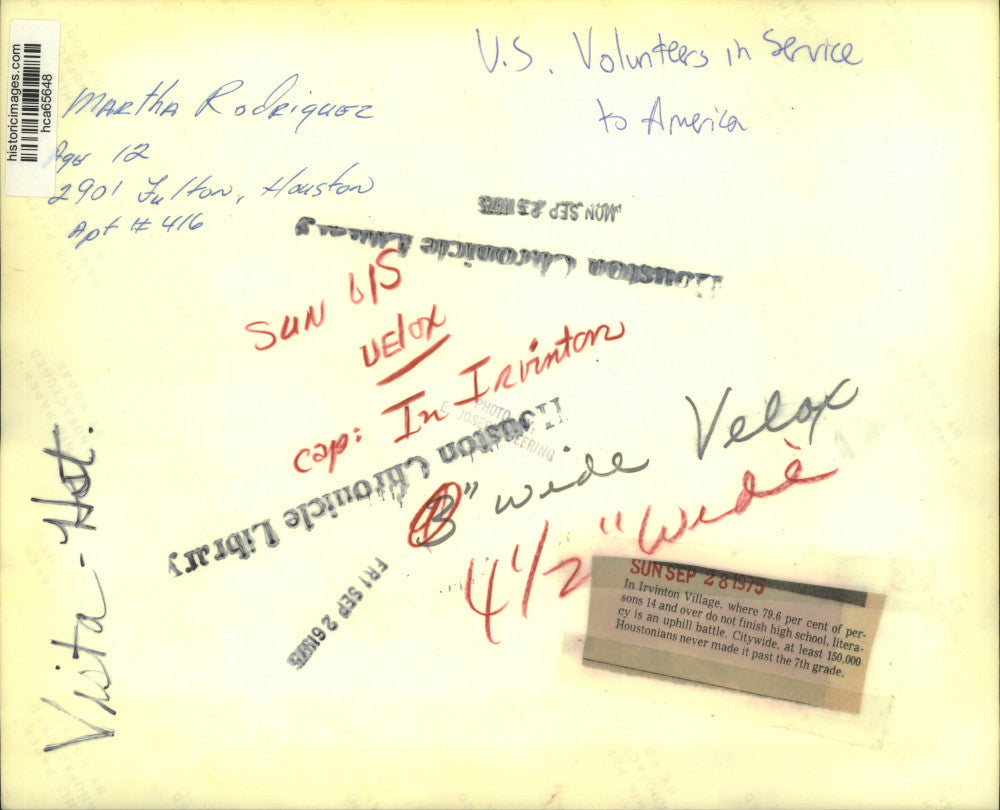 historicimages.com
hca65648
U.S. Volunteers in Service
to America
Martha Rodriquez
Age 12
2901 Fulton, Houston
Apt # 416
MON SEP 23 1975
Houston Chronicle Library
SUN 6/S
VELOX
cap: In Irvinton
PHOTO
E. JOSEPH DEERING
Houston Chronicle Library
3" wide Velox
4 1/2" wide
FRI SEP 26 1975
Vista - Hot.
SUN SEP 28 1975
In Irvinton Village, where 79.6 per cent of per-
sons 14 and over do not finish high school, litera-
cy is an uphill battle. Citywide, at least 150,000
Houstonians never made it past the 7th grade.